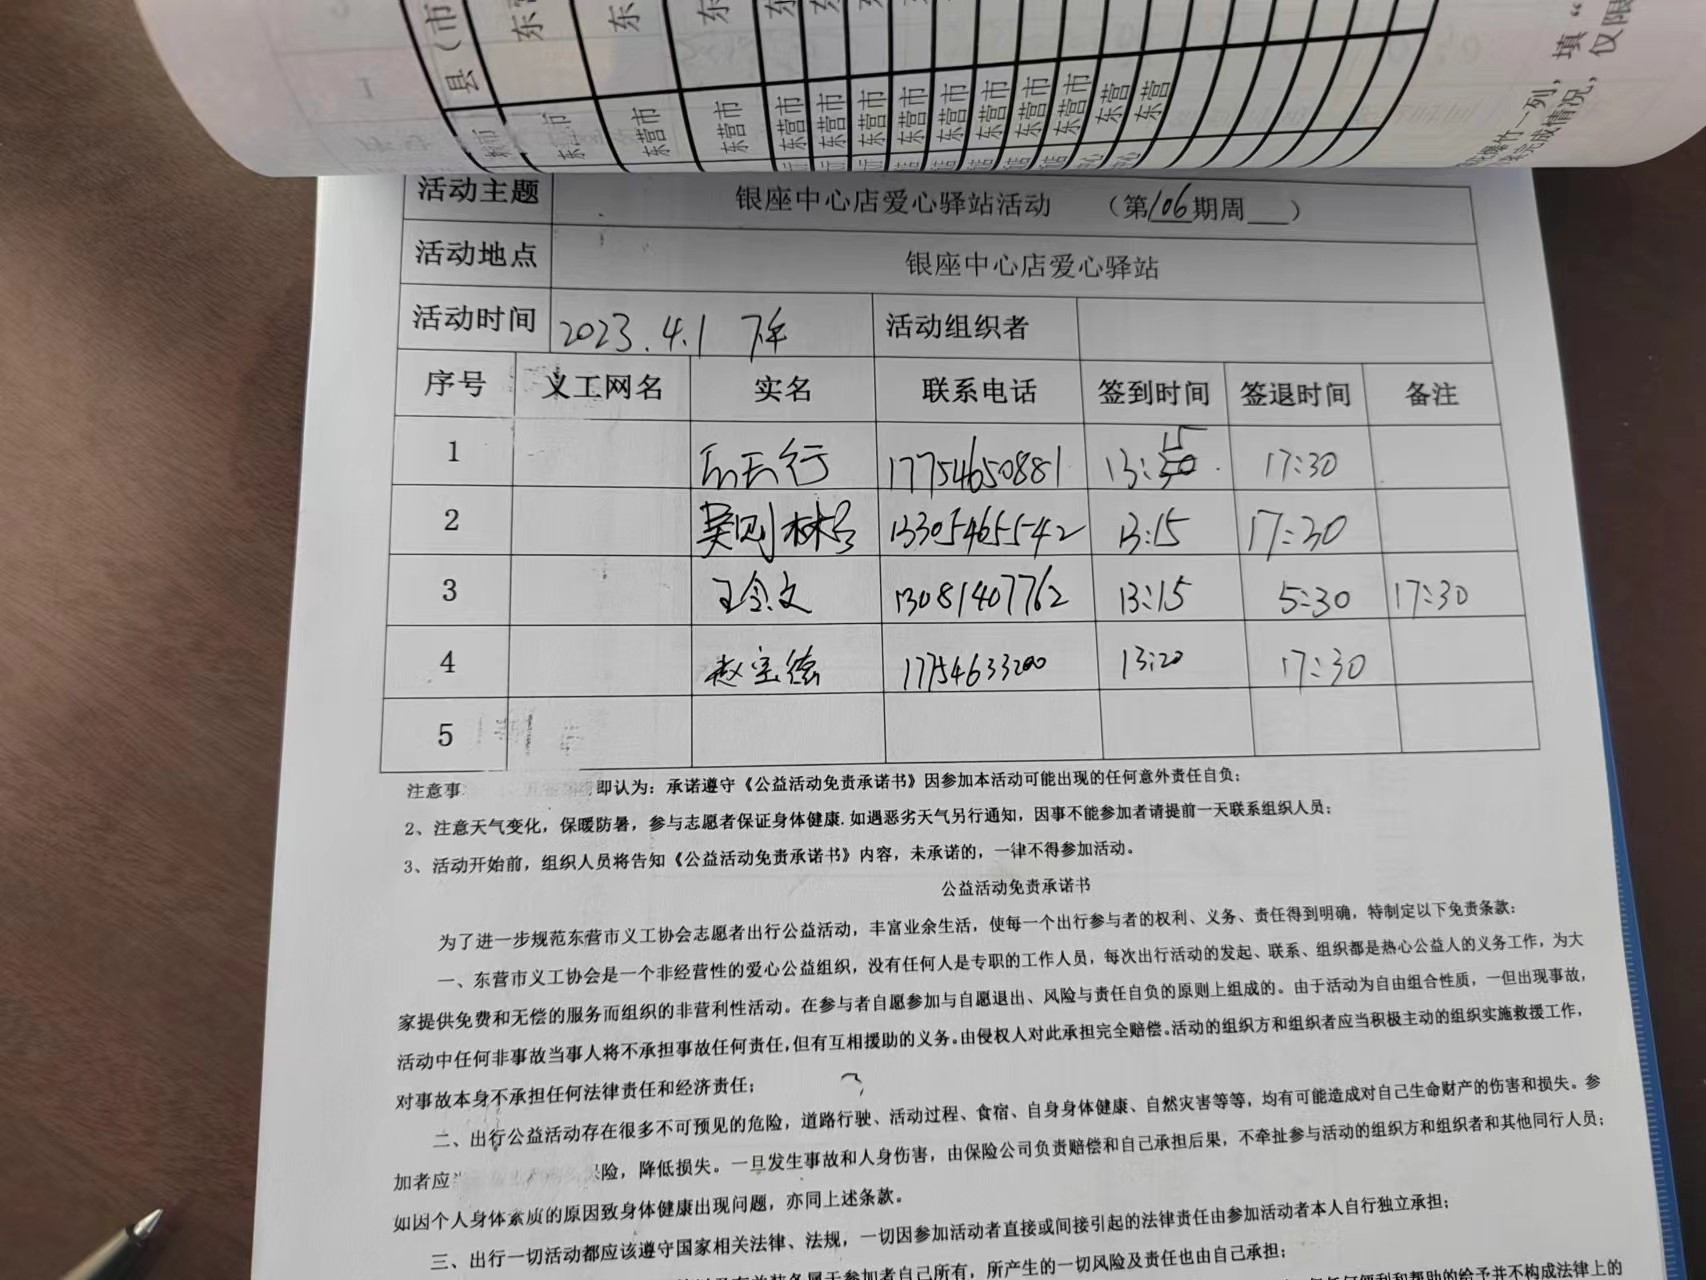 县（市
东营市 东营市 东营市 东营市 东营市 东营市 东营市 东营市 东营市 东营市 东营 东营
一列，填“
完成情况，仅限
活动主题 银座中心店爱心驿站活动 （第106期周___）
活动地点 银座中心店爱心驿站
活动时间 2023.4.1 下午 活动组织者
序号 义工网名 实名 联系电话 签到时间 签退时间 备注
1 17754650881 13:15 17:30
2 13305465542 13:15 17:30
3 王令文 13081407762 13:15 5:30 17:30
4 赵宝德 17754633200 13:20 17:30
5
注意事 即认为：承诺遵守《公益活动免责承诺书》因参加本活动可能出现的任何意外责任自负；
2、注意天气变化，保暖防暑，参与志愿者保证身体健康.如遇恶劣天气另行通知，因事不能参加者请提前一天联系组织人员；
3、活动开始前，组织人员将告知《公益活动免责承诺书》内容，未承诺的，一律不得参加活动。
公益活动免责承诺书
为了进一步规范东营市义工协会志愿者出行公益活动，丰富业余生活，使每一个出行参与者的权利、义务、责任得到明确，特制定以下免责条款：
一、东营市义工协会是一个非经营性的爱心公益组织，没有任何人是专职的工作人员，每次出行活动的发起、联系、组织都是热心公益人的义务工作，为大
家提供免费和无偿的服务而组织的非营利性活动。在参与者自愿参加与自愿退出、风险与责任自负的原则上组成的。由于活动为自由组合性质，一但出现事故，
活动中任何非事故当事人将不承担事故任何责任，但有互相援助的义务。由侵权人对此承担完全赔偿。活动的组织方和组织者应当积极主动的组织实施救援工作，
对事故本身不承担任何法律责任和经济责任；
二、出行公益活动存在很多不可预见的危险，道路行驶、活动过程、食宿、自身身体健康、自然灾害等等，均有可能造成对自己生命财产的伤害和损失。参
加者应当 险，降低损失。一旦发生事故和人身伤害，由保险公司负责赔偿和自己承担后果，不牵扯参与活动的组织方和组织者和其他同行人员；
如因个人身体素质的原因致身体健康出现问题，亦同上述条款。
三、出行一切活动都应该遵守国家相关法律、法规，一切因参加活动者直接或间接引起的法律责任由参加活动者本人自行独立承担；
属于参加者自己所有，所产生的一切风险及责任也由自己承担；
便利和帮助的给予并不构成法律上的